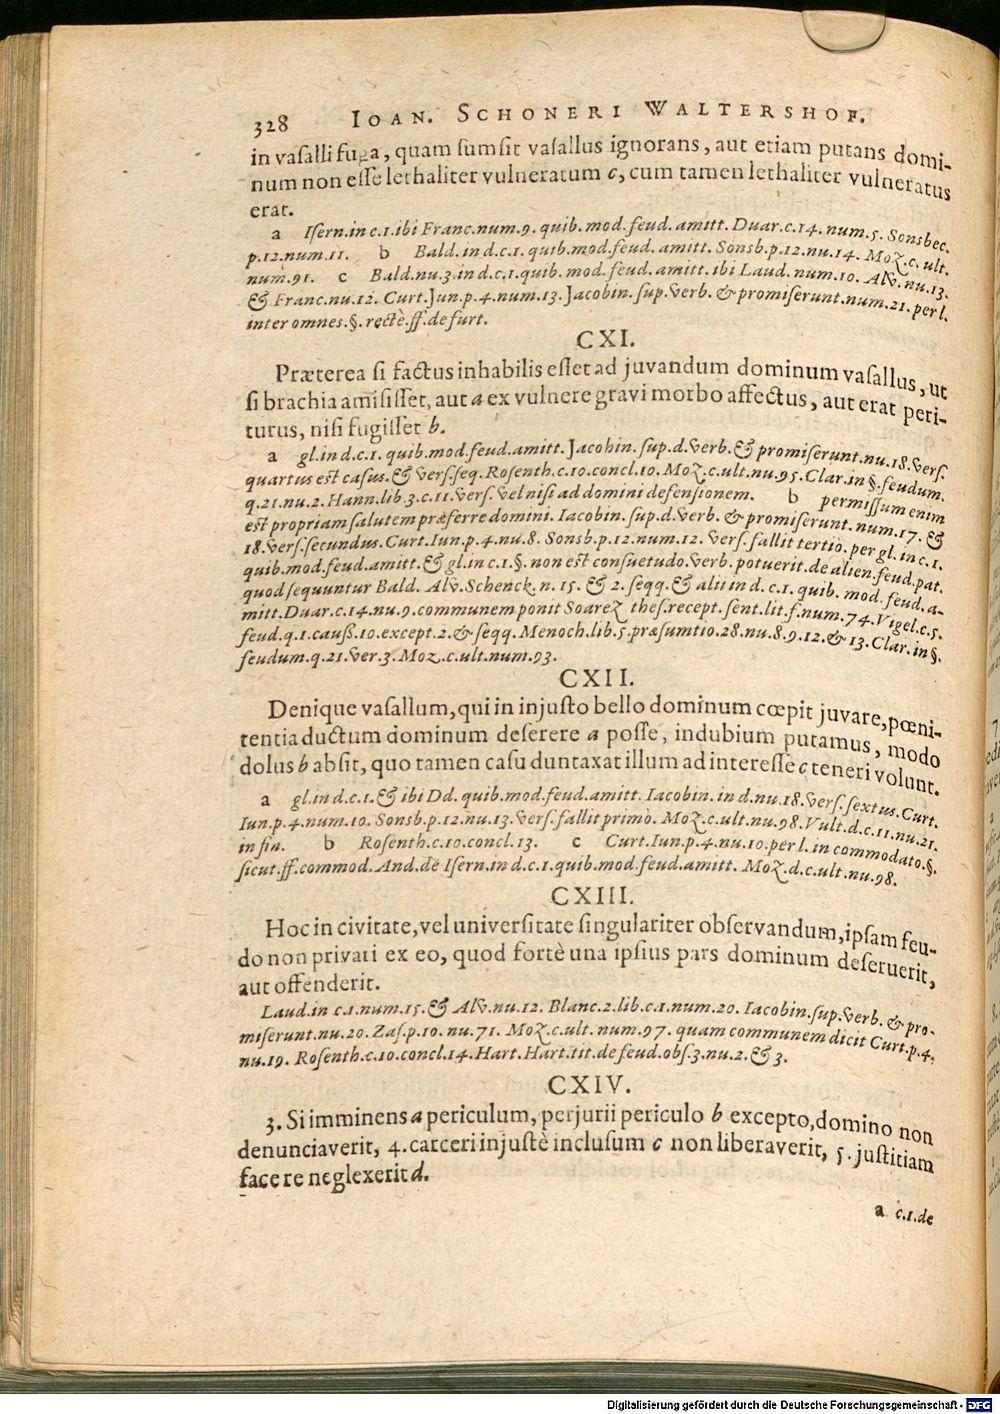 328 IOAN. SCHONERI WALTERSHOF.
in vaſalli fuga, quam ſumſit vaſallus ignorans, aut etiam putans domi-
num non eſſe lethaliter vulneratum c, cum tamen lethaliter vulneratus
erat.
a Iſern. in c. 1. ibi Franc. num. 9. quib. mod. feud. amitt. Duar. c. 14. num. 5. Sonsbec.
p. 12. num. 11. b Bald. in d. c. 1. quib. mod. feud. amitt. Sonsb. p. 12. nu. 14. Moz. c. ult.
num. 91. c Bald. nu. 3. in d. c. 1. quib. mod. feud. amitt. ibi Laud. num. 10. Alv. nu. 13.
& Franc. nu. 12. Curt. Jun. p. 4. num. 13. Jacobin. ſup. verb. & promiſerunt. num. 21. per l.
inter omnes. §. rectè. ff. de furt.
CXI.
Præterea ſi factus inhabilis eſſet ad juvandum dominum vaſallus, ut
ſi brachia amiſiſſet, aut a ex vulnere gravi morbo affectus, aut erat peri-
turus, niſi fugiſſet b.
a gl. in d. c. 1. quib. mod. feud. amitt. Jacobin. ſup. d. verb. & promiſerunt. nu. 18. verſ.
quartus est caſus. & verſ. ſeq. Roſenth. c. 10. concl. 10. Moz. c. ult. nu. 95. Clar. in §. feudum.
q. 21. nu. 2. Hann. lib. 3. c. 11. verſ. vel niſi ad domini defenſionem. b permiſſum enim
est propriam ſalutem præferre domini. Iacobin. ſup. d. verb. & promiſerunt. num. 17. &
18. verſ. ſecundus. Curt. Iun. p. 4. nu. 8. Sonsb. p. 12. num. 12. verſ. fallit tertio. per gl. in c. 1.
quib. mod. feud. amitt. & gl. in c. 1. §. non est conſuetudo. verb. potuerit. de alien. feud. pat.
quod ſequuntur Bald. Alv. Schenck. n. 15. & 2. ſeqq. & alii in d. c. 1. quib. mod. feud. a-
mitt. Duar. c. 14. nu. 9. communem ponit Soarez theſ. recept. ſent. lit. f. num. 74. Vigel. c. 5.
feud. q. 1. cauß. 10. except. 2. & ſeqq. Menoch. lib. 5. præſumtio. 28. nu. 8. 9. 12. & 13. Clar. in §.
feudum. q. 21. ver. 3. Moz. c. ult. num. 93.
CXII.
Denique vaſallum, qui in injuſto bello dominum cœpit juvare, pœni-
tentia ductum dominum deſerere a poſſe, indubium putamus, modo
dolus b abſit, quo tamen caſu duntaxat illum ad intereſſe c teneri volunt.
a gl. in d. c. 1. & ibi Dd. quib. mod. feud. amitt. Iacobin. in d. nu. 18. verſ. ſextus. Curt.
Iun. p. 4. num. 10. Sonsb. p. 12. nu. 13. verſ. fallit primò. Moz. c. ult. nu. 98. Vult. d. c. 11. nu. 21.
in fin. b Roſenth. c. 10. concl. 13. c Curt. Iun. p. 4. nu. 10. per l. in commodato. §.
ſicut. ff. commod. And. de Iſern. in d. c. 1. quib. mod. feud. amitt. Moz. d. c. ult. nu. 98.
CXIII.
Hoc in civitate, vel univerſitate ſingulariter obſervandum, ipſam feu-
do non privati ex eo, quod fortè una ipſius pars dominum deſeruerit,
aut offenderit.
Laud. in c. 1. num. 15. & Alv. nu. 12. Blanc. 2. lib. c. 1. num. 20. Iacobin. ſup. verb. & pro-
miſerunt. nu. 20. Zaſ. p. 10. nu. 71. Moz. c. ult. num. 97. quam communem dicit Curt. p. 4.
nu. 19. Roſenth. c. 10. concl. 14. Hart. Hart. tit. de feud. obſ. 3. nu. 2. & 3.
CXIV.
3. Si imminens a periculum, perjurii periculo b excepto, domino non
denunciaverit, 4. carceri injuſtè incluſum c non liberaverit, 5. juſtitiam
facere neglexerit d.
a c. 1. de
Digitalisierung gefördert durch die Deutsche Forschungsgemeinschaft - DFG